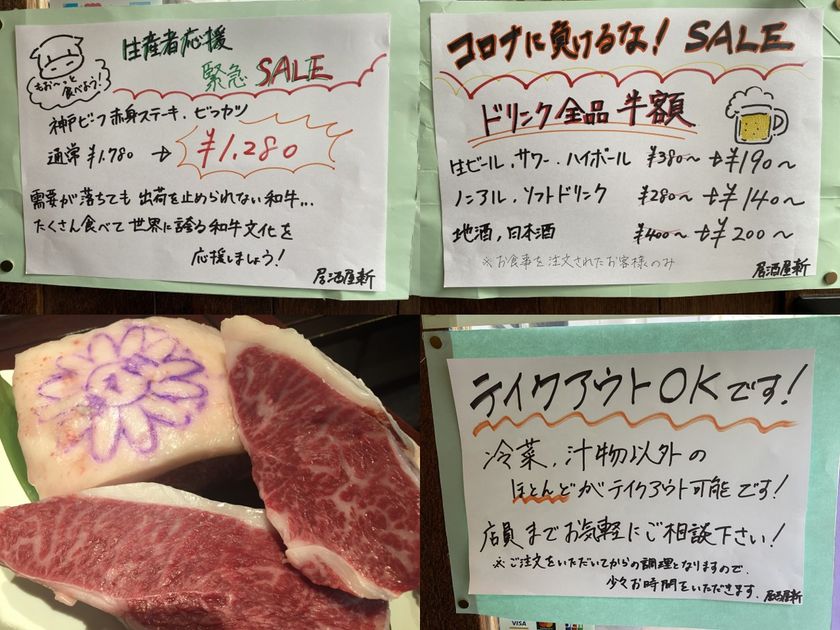 もお〜っと
食べよう！
生産者応援
緊急 SALE
神戸ビーフ赤身ステーキ、ビフカツ
通常 ¥1,780 → ¥1,280
需要が落ちても 出荷を止められない和牛…
たくさん食べて 世界に誇る和牛文化を
応援しましょう！
居酒屋新
コロナに負けるな！ SALE
ドリンク全品 半額
生ビール、サワー、ハイボール ¥380〜→¥190〜
ノンアル、ソフトドリンク ¥280〜→¥140〜
地酒、日本酒 ¥400〜→¥200〜
※お食事を注文されたお客様のみ
居酒屋新
テイクアウトOKです！
冷菜、汁物以外の
ほとんどがテイクアウト可能です！
店員までお気軽にご相談下さい！
※ご注文をいただいてからの調理となりますので、
少々お時間をいただきます。居酒屋新
VISA